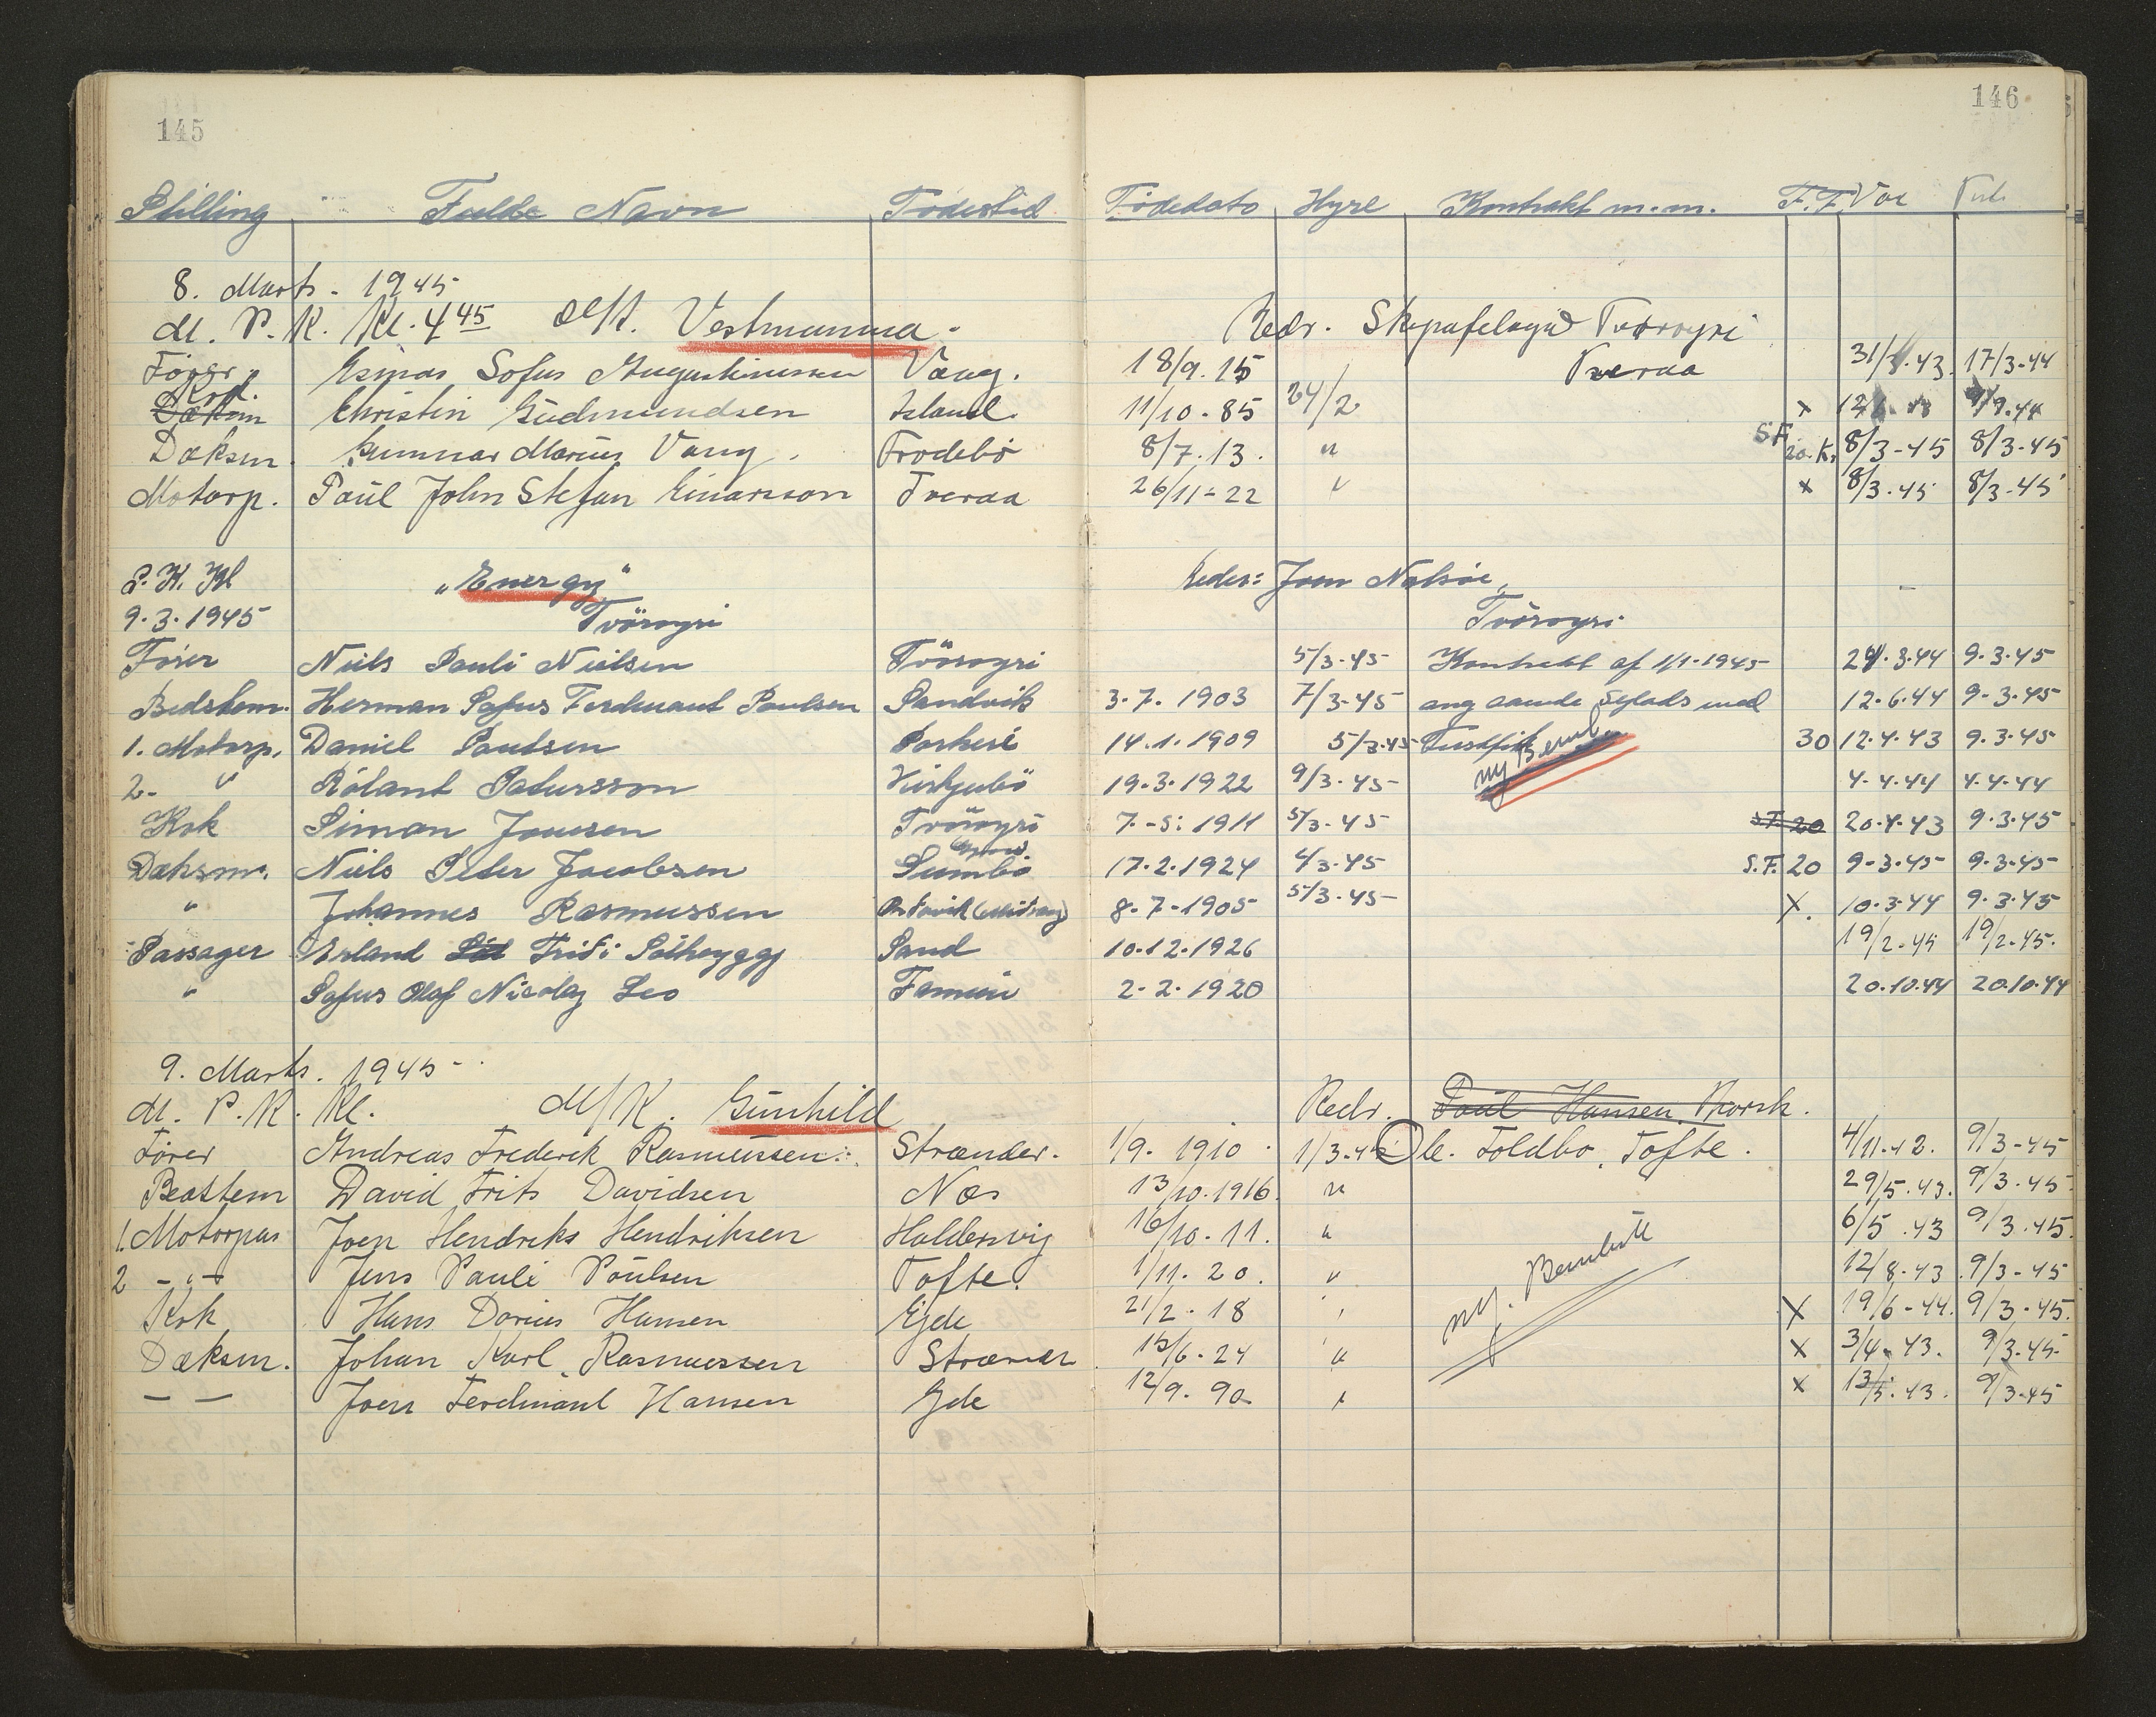 145
146
Stilling Fulde Navn Fødested Fødedato Hyre Kontrakt m.m. F.F. Vac
8. Marts. 1945
M. P. K. Kl. 4 45 M/K. Vestmanna. Redr. Skipafelagid Tvøroyri
Fører Sofus Augustinussen Vaag. 18/9. 15 Tveraa 31/ .43. 17/3-44
Kok. Dæksm Christin Gudmundsen Island. 11/10. 85 24/2 x 9/9.44
Dæksm. Gunnar Marius Vang. Frodebø 8/7. 13. " SF 20. K. 8/3-45 8/3-45
Motorp. Paul John Stefan Einarsson Tveraa 26/11-22 " x 8/3.45 8/3-45
P. K. Kl „Energy“ Reder: Joen Nolsøe,
9.3.1945 Tvöroyri Tvöroyri
Fører Niels Pauli Nielsen Tvöroyri 5/3-45 Kontrakt af 1/1-1945 24.3.44 9.3.45
Bedstem. Herman Sofus Ferdinant Poulsen Sandvik 3.7. 1903 7/3-45 ang aarude Seglads med 12.6.44 9-3.45
1. Motorp. Daniel Poulsen Porkeri 14.1.1909 5/3-45 ny Bemb 30 12.4.43 9.3.45
2- " Róland Patursson Kirkjubö 19.3.1922 9/3-45 4-4.44 4.4.44
Kok Simon Joensen Tvöroyri 7.-5: 1911 5/3-45 S.F. 20 20.4.43 9.3.45
Dæksm. Niels Peter Jacobsen Sumbö 17.2.1924 4/3.45 S.F. 20 9-3.45 9.3.45
" Johannes Rasmussen 8-7-1905 5/3.45 X. 10.3.44 9.3.45
Passager Erland Fridi Sólheyggj Sand 10.12.1926 19/2.45 19/2.45.
" Sofus Olaf Nicolaj Leo Famien 2-2.1920 20.10.44 20.10.44
9. Marts. 1945
M. P. K. Kl. M/K. Gunhild Redr. Poul Hansen
Fører Andreas Frederik Rasmussen. Strænder. 1/9. 1910. 1/3-45 Ole. Toldbo, Tofte. 4/11.42. 9/3-45
Bedstem David Frits Davidsen Næs 13/10.1916. " 29/5.43. 9/3.45
1. Motorpas Joen Hendriks Hendriksen Haldersvig 16/10-11. " 6/5.43 9/3.45.
2 -"- Jens Pauli Poulsen Tofte. 1/11. 20. " ny. Bemb 12/8-43. 9/3-45
Kok Hans Dorius Hansen Ejde 21/2.18 " X 19/6-44. 9/3-45.
Dæksm. Johan Karl Rasmussen Strænder 15/6-24 " x 3/4.43. 9/3-45
— — Joen Ferdinant Hansen Ejde 12/9. 90 " x 13/5.43. 9/3-45